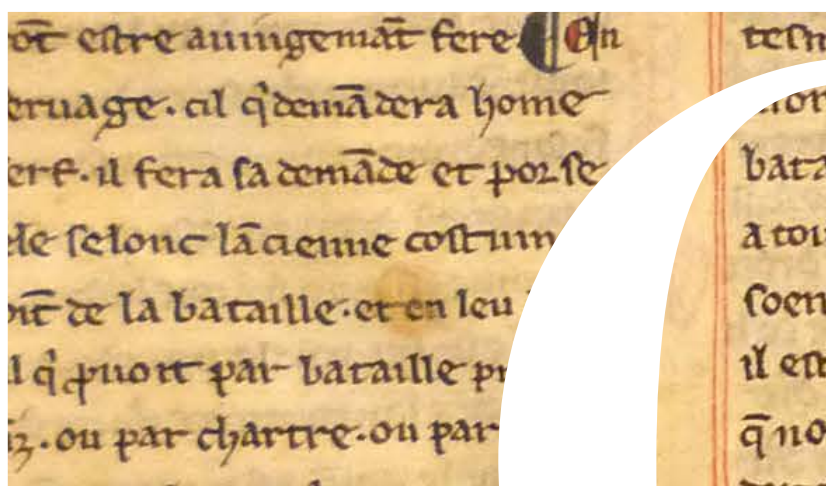 estre auingemāt fere ¶ En
eruage . cil q̇ demādera home
erf . il fera sa demāde et por se
le selonc lācienne costum
de la bataille . et en leu
q̇ ꝓuoit par bataille
. ou par chartre . ou par
tesm
bata
a tou
soen
il est
q̄ no